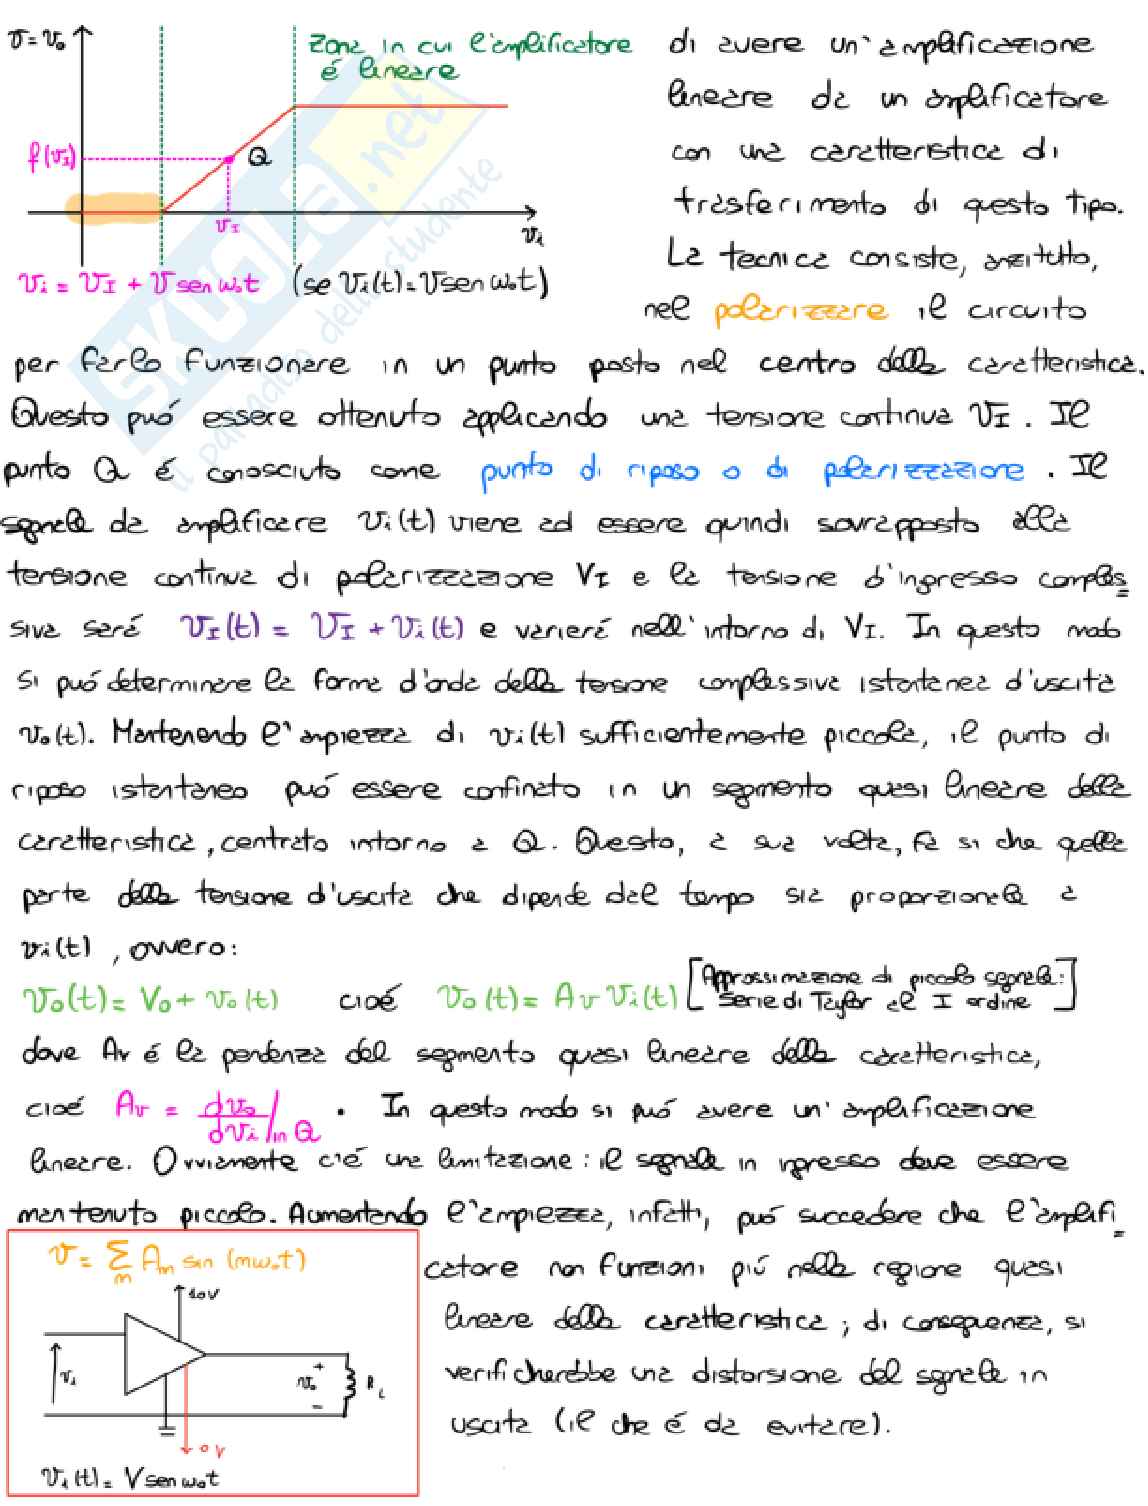 v = v₀
zona in cui l'amplificatore
é lineare
f(v_I)
Q
v_I
v_i
v_i = V_I + V sen ω₀t (se v_i(t) = V sen ω₀t)
di avere un'amplificazione
lineare da un amplificatore
con una caratteristica di
trasferimento di questo tipo.
La tecnica consiste, anzitutto,
nel polarizzare il circuito
per farlo funzionare in un punto posto nel centro della caratteristica.
Questo puó essere ottenuto applicando una tensione continua V_I. Il
punto Q é conosciuto come punto di riposo o di polarizzazione. Il
segnale da amplificare v_i(t) viene ad essere quindi sovrapposto alla
tensione continua di polarizzazione V_I e la tensione d'ingresso comples
siva sará v_I(t) = V_I + v_i(t) e varierá nell'intorno di V_I. In questo modo
si puó determinare la forma d'onda della tensione complessiva istantanea d'uscita
v₀(t). Mantenendo l'ampiezza di v_i(t) sufficientemente piccola, il punto di
riposo istantaneo puó essere confinato in un segmento quasi lineare della
caratteristica, centrato intorno a Q. Questo, a sua volta, fa si che quella
parte della tensione d'uscita che dipende dal tempo sia proporzionale a
v_i(t), ovvero:
v₀(t) = V₀ + v₀(t) cioé v₀(t) = A_v v_i(t) [Approssimazione di piccolo segnale:
Serie di Taylor al I ordine]
dove A_v é la pendenza del segmento quasi lineare della caratteristica,
cioé A_v = dv₀/dv_i |in Q . In questo modo si puó avere un'amplificazione
lineare. Ovviamente c'é una limitazione: il segnale in ingresso deve essere
mantenuto piccolo. Aumentando l'ampiezza, infatti, puó succedere che l'amplifi
catore non funzioni piú nella regione quasi
lineare della caratteristica; di conseguenza, si
verificherebbe una distorsione del segnale in
uscita (il che é da evitare).
v = Σ_m A_m sin (mω₀t)
10V
v_i
+
v₀
-
R_L
0V
v_i(t) = V sen ω₀t
SKUOLA.net
il paradiso dello studente